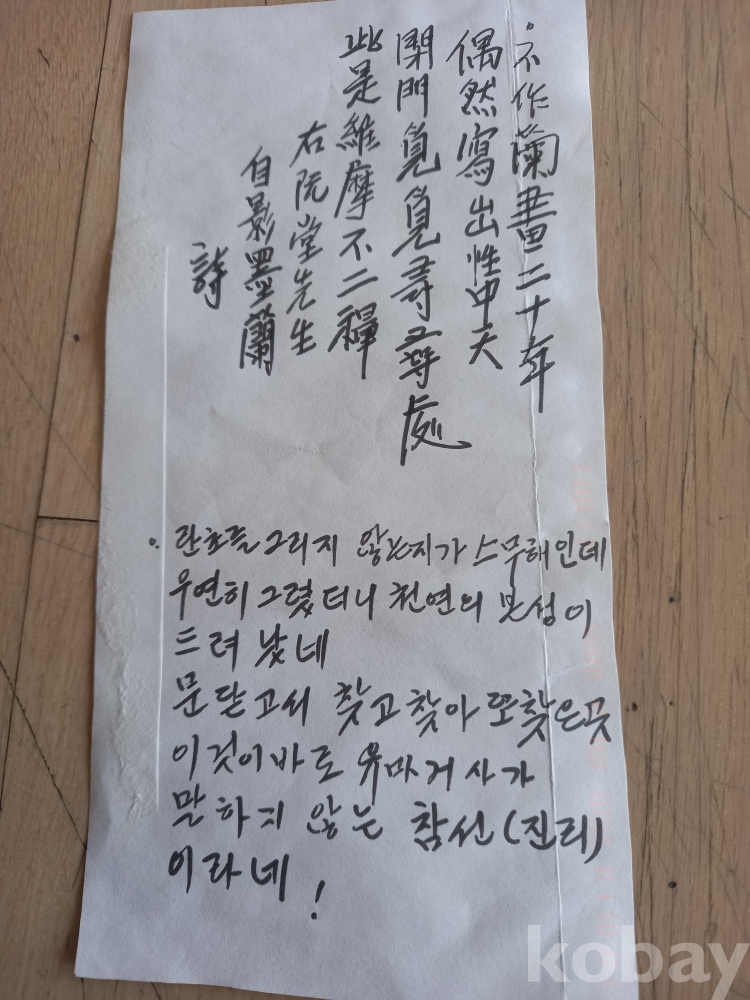 不作蘭畫二十年
偶然寫出性中天
閉門覓覓尋尋處
此是維摩不二禪
右阮堂先生
自影墨蘭
詩
란초를 그리지 않는지가 스무해인데
우연히 그렸더니 천연의 본성이
드려 났네
문닫고서 찾고찾아 또찾은곳
이것이바로 유마거사가
말하지 않는 참선(진리)
이라네!
kobay